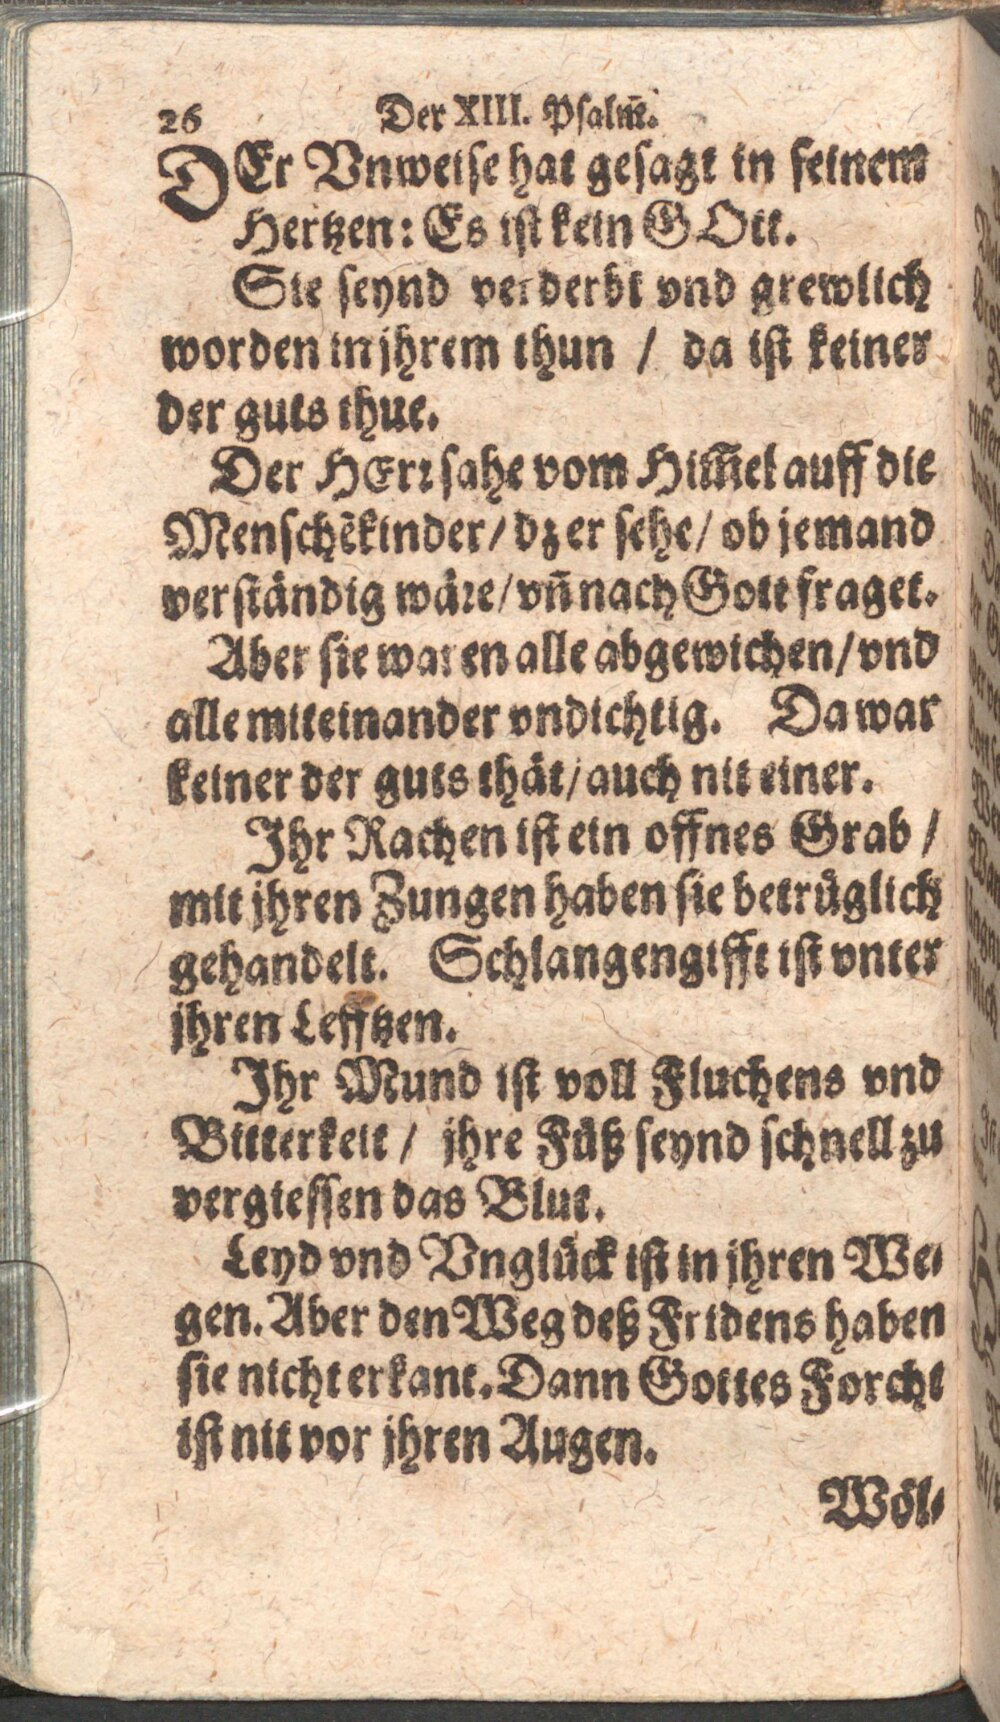 26 Der XIII. Psalm̄.
DEr Vnweise hat gesagt in seinem
Hertzen: Es ist kein GOtt.
Sie seynd verderbt vnd grewlich
worden in jhrem thun / da ist keiner
der guts thut.
Der HErr sahe vom Him̄el auff die
Menschēkinder / dz er sehe / ob jemand
verständig wäre / vn̄ nach Gott fraget.
Aber sie waren alle abgewichen / vnd
alle miteinander vndichtig. Da war
keiner der guts thät / auch nit einer.
Ihr Rachen ist ein offnes Grab /
mit jhren Zungen haben sie betrüglich
gehandelt. Schlangengifft ist vnter
jhren Lefftzen.
Ihr Mund ist voll Fluchens vnd
Bitterkeit / jhre Füß seynd schnell zu
vergiessen das Blut.
Leyd vnd Vnglück ist in jhren We-
gen. Aber den Weg deß Fridens haben
sie nicht erkant. Dann Gottes Forcht
ist nit vor jhren Augen.
Wöl-